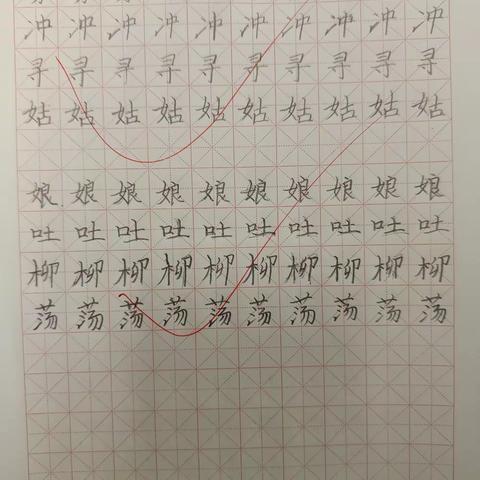 冲冲冲冲冲冲冲冲冲冲
寻寻寻寻寻寻寻寻寻寻
姑姑姑姑姑姑姑姑姑姑
娘娘娘娘娘娘娘娘娘娘
吐吐吐吐吐吐吐吐吐吐
柳柳柳柳柳柳柳柳柳柳
荡荡荡荡荡荡荡荡荡荡